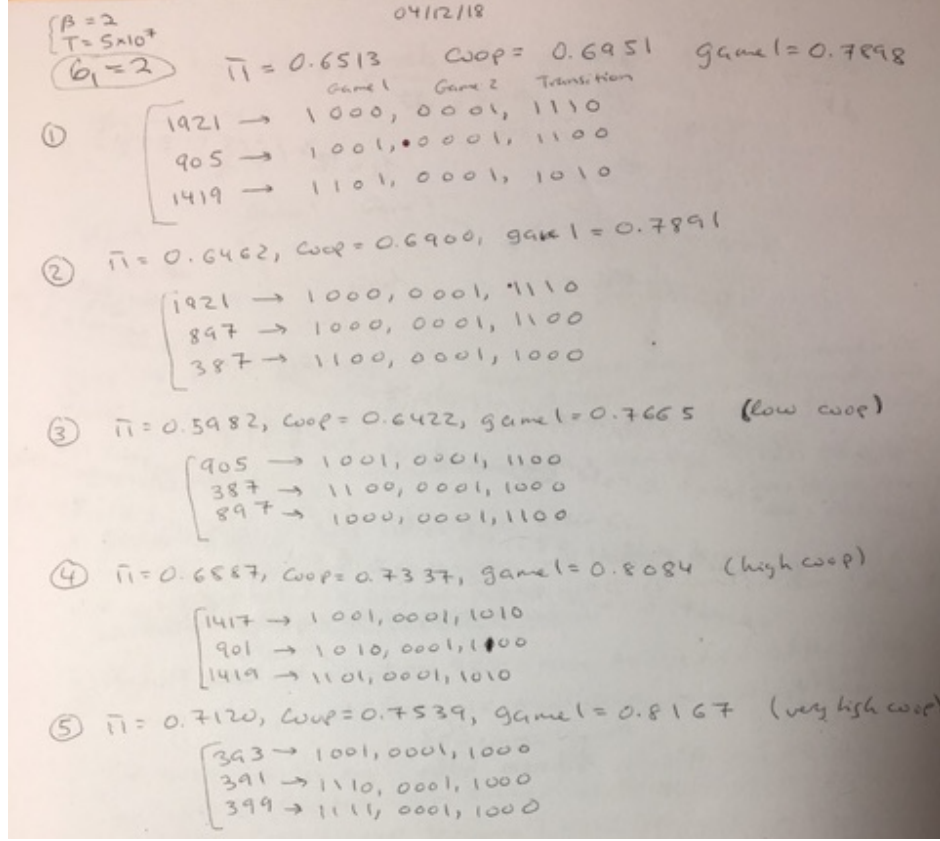 04/12/18
β = 2
T = 5×10⁷
G₁ = 2
π̄ = 0.6513 coop = 0.6951 game 1 = 0.7898
Game 1 Game 2 Transition
① 1921 → 1000, 0001, 1110
905 → 1001, 0001, 1100
1419 → 1101, 0001, 1010
② π̄ = 0.6462, coop = 0.6900, game 1 = 0.7891
1921 → 1000, 0001, 1110
897 → 1000, 0001, 1100
387 → 1100, 0001, 1000
③ π̄ = 0.5982, coop = 0.6422, game 1 = 0.7665 (low coop)
905 → 1001, 0001, 1100
387 → 1100, 0001, 1000
897 → 1000, 0001, 1100
④ π̄ = 0.6587, coop = 0.7337, game 1 = 0.8084 (high coop)
1417 → 1001, 0001, 1010
901 → 1010, 0001, 1100
1419 → 1101, 0001, 1010
⑤ π̄ = 0.7120, coop = 0.7539, game 1 = 0.8167 (very high coop)
393 → 1001, 0001, 1000
391 → 1110, 0001, 1000
399 → 1111, 0001, 1000